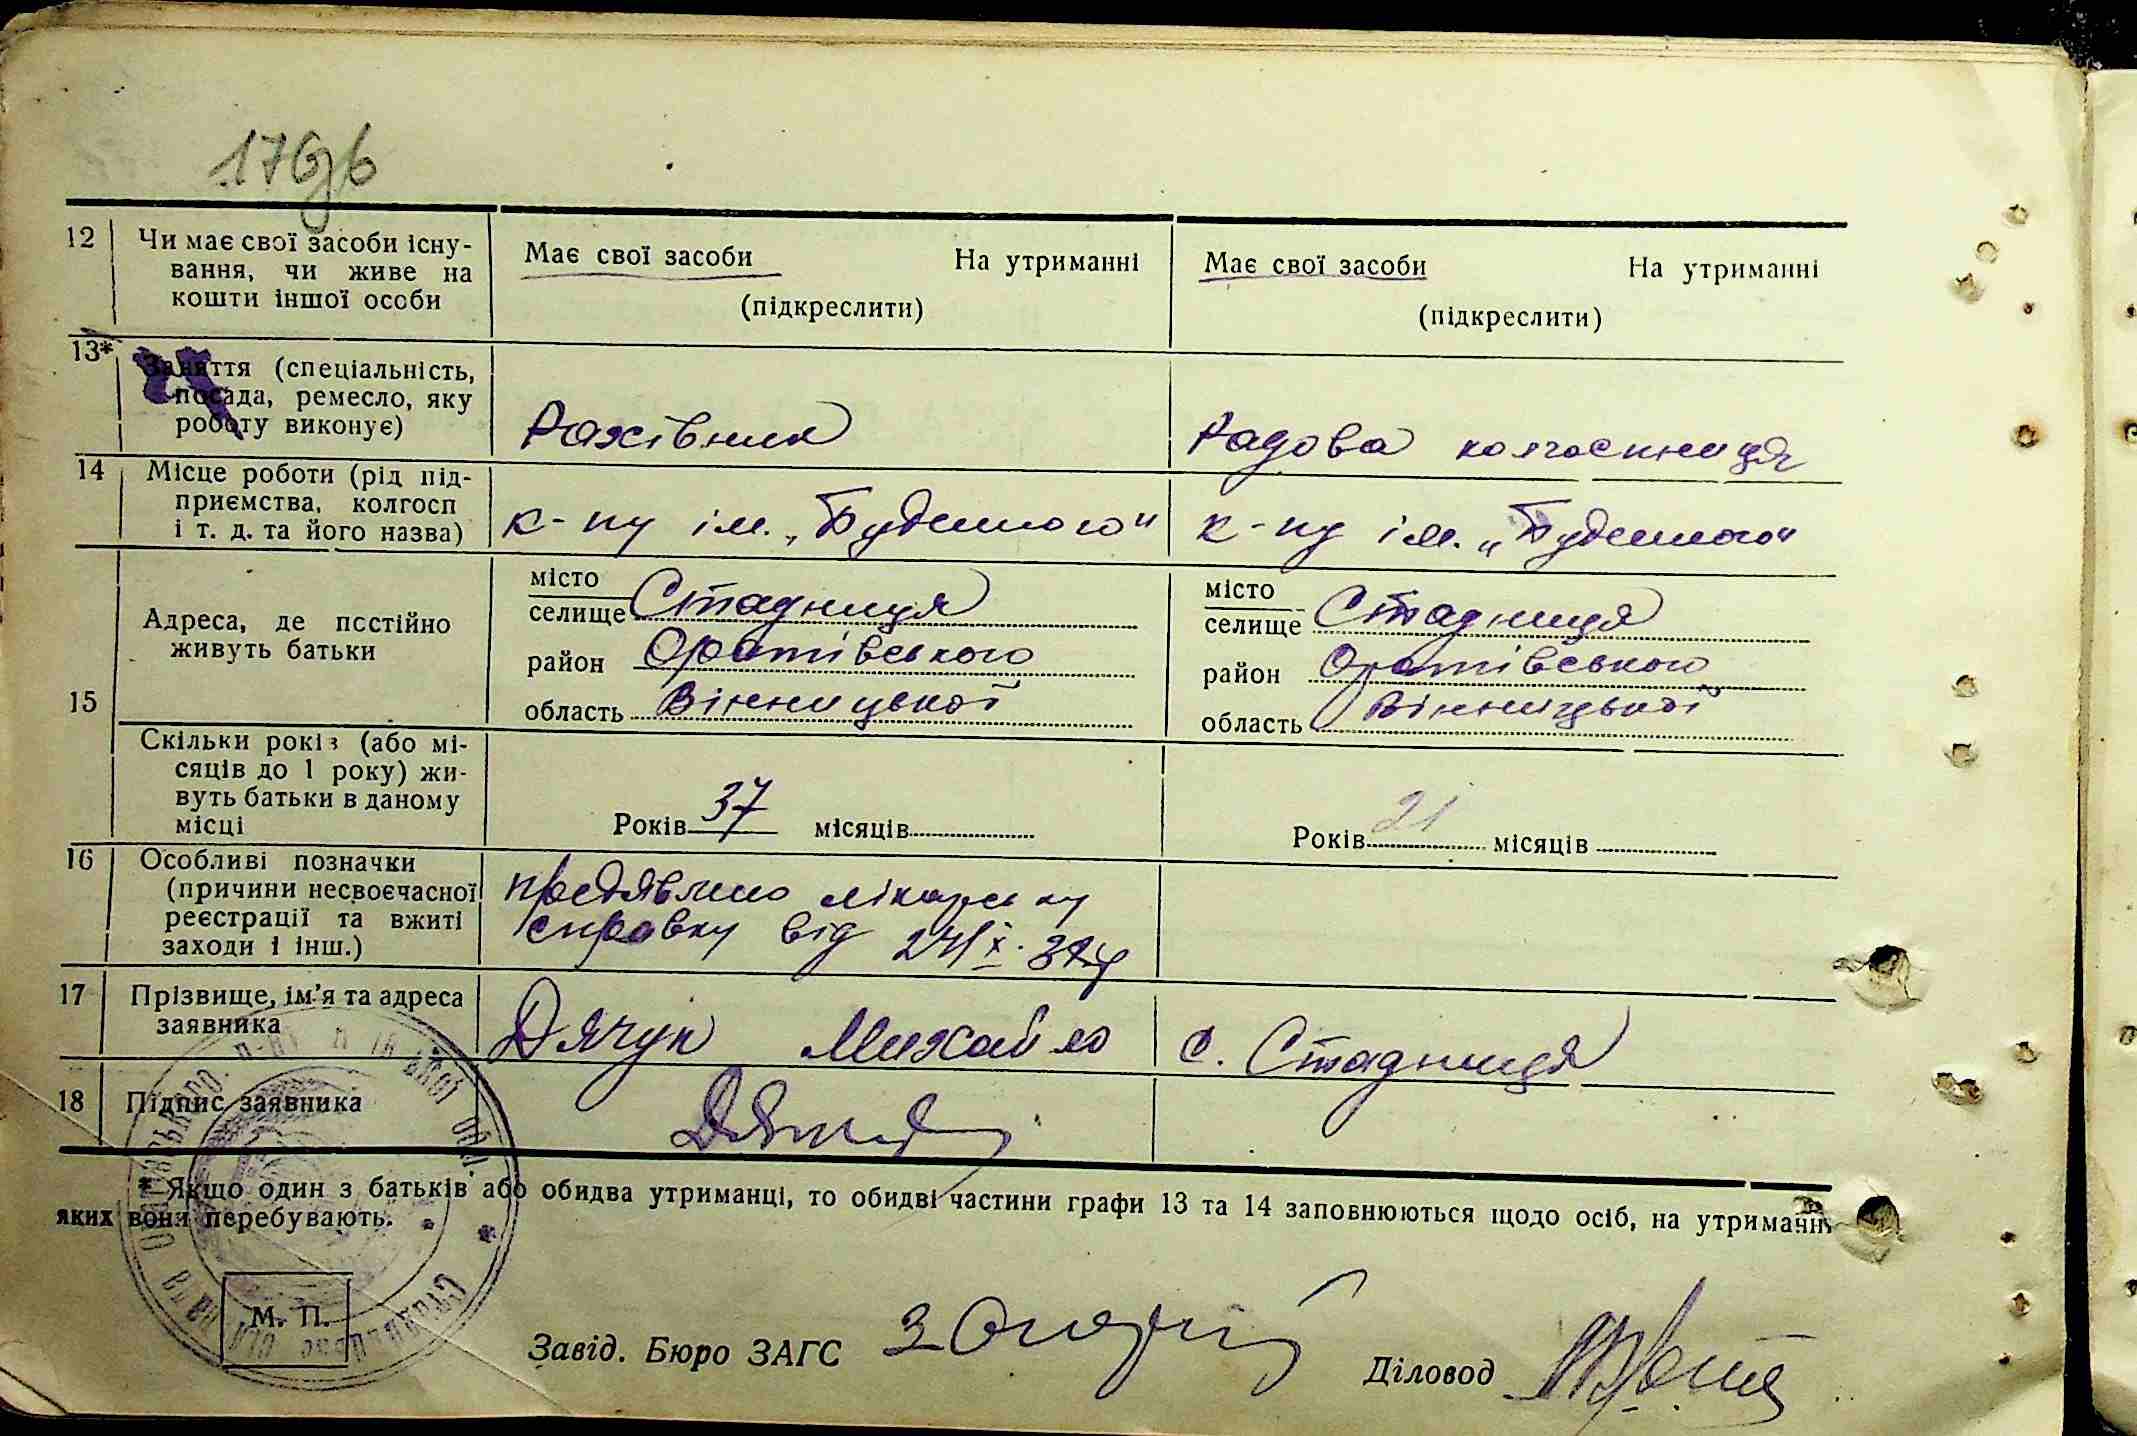 12 Чи має свої засоби існу-
вання, чи живе на
кошти іншої особи
Має свої засоби На утриманні
(підкреслити)
Має свої засоби На утриманні
(підкреслити)
13* Заняття (спеціальність,
посада, ремесло, яку
роботу виконує)
Рахівник
Радова колгоспниця
14 Місце роботи (рід під-
приємства, колгосп
і т. д. та його назва)
к-пу ім. „Буденного"
к-пу ім. „Буденного"
15 Адреса, де постійно
живуть батьки
місто
селище Стадниця
район Оратівського
область Вінницької
місто
селище Стадниця
район Оратівського
область Вінницької
Скільки років (або мі-
сяців до 1 року) жи-
вуть батьки в даному
місці
Років 37 місяців
Років 21 місяців
16 Особливі позначки
(причини несвоєчасної
реєстрації та вжиті
заходи і інш.)
предявлено лікарську
справку від
17 Прізвище, ім'я та адреса
заявника
Дячук Михайло
с. Стадниця
18 Підпис заявника
* Якщо один з батьків або обидва утриманці, то обидві частини графи 13 та 14 заповнюються щодо осіб, на утриманні
яких вони перебувають.
М. П.
Завід. Бюро ЗАГС
Діловод